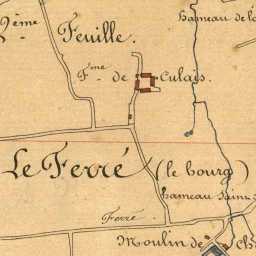 2ème Feuille.
hameau de la
Fme de Culais
Le Ferré (le bourg)
hameau Saint
Ferré
Moulin de